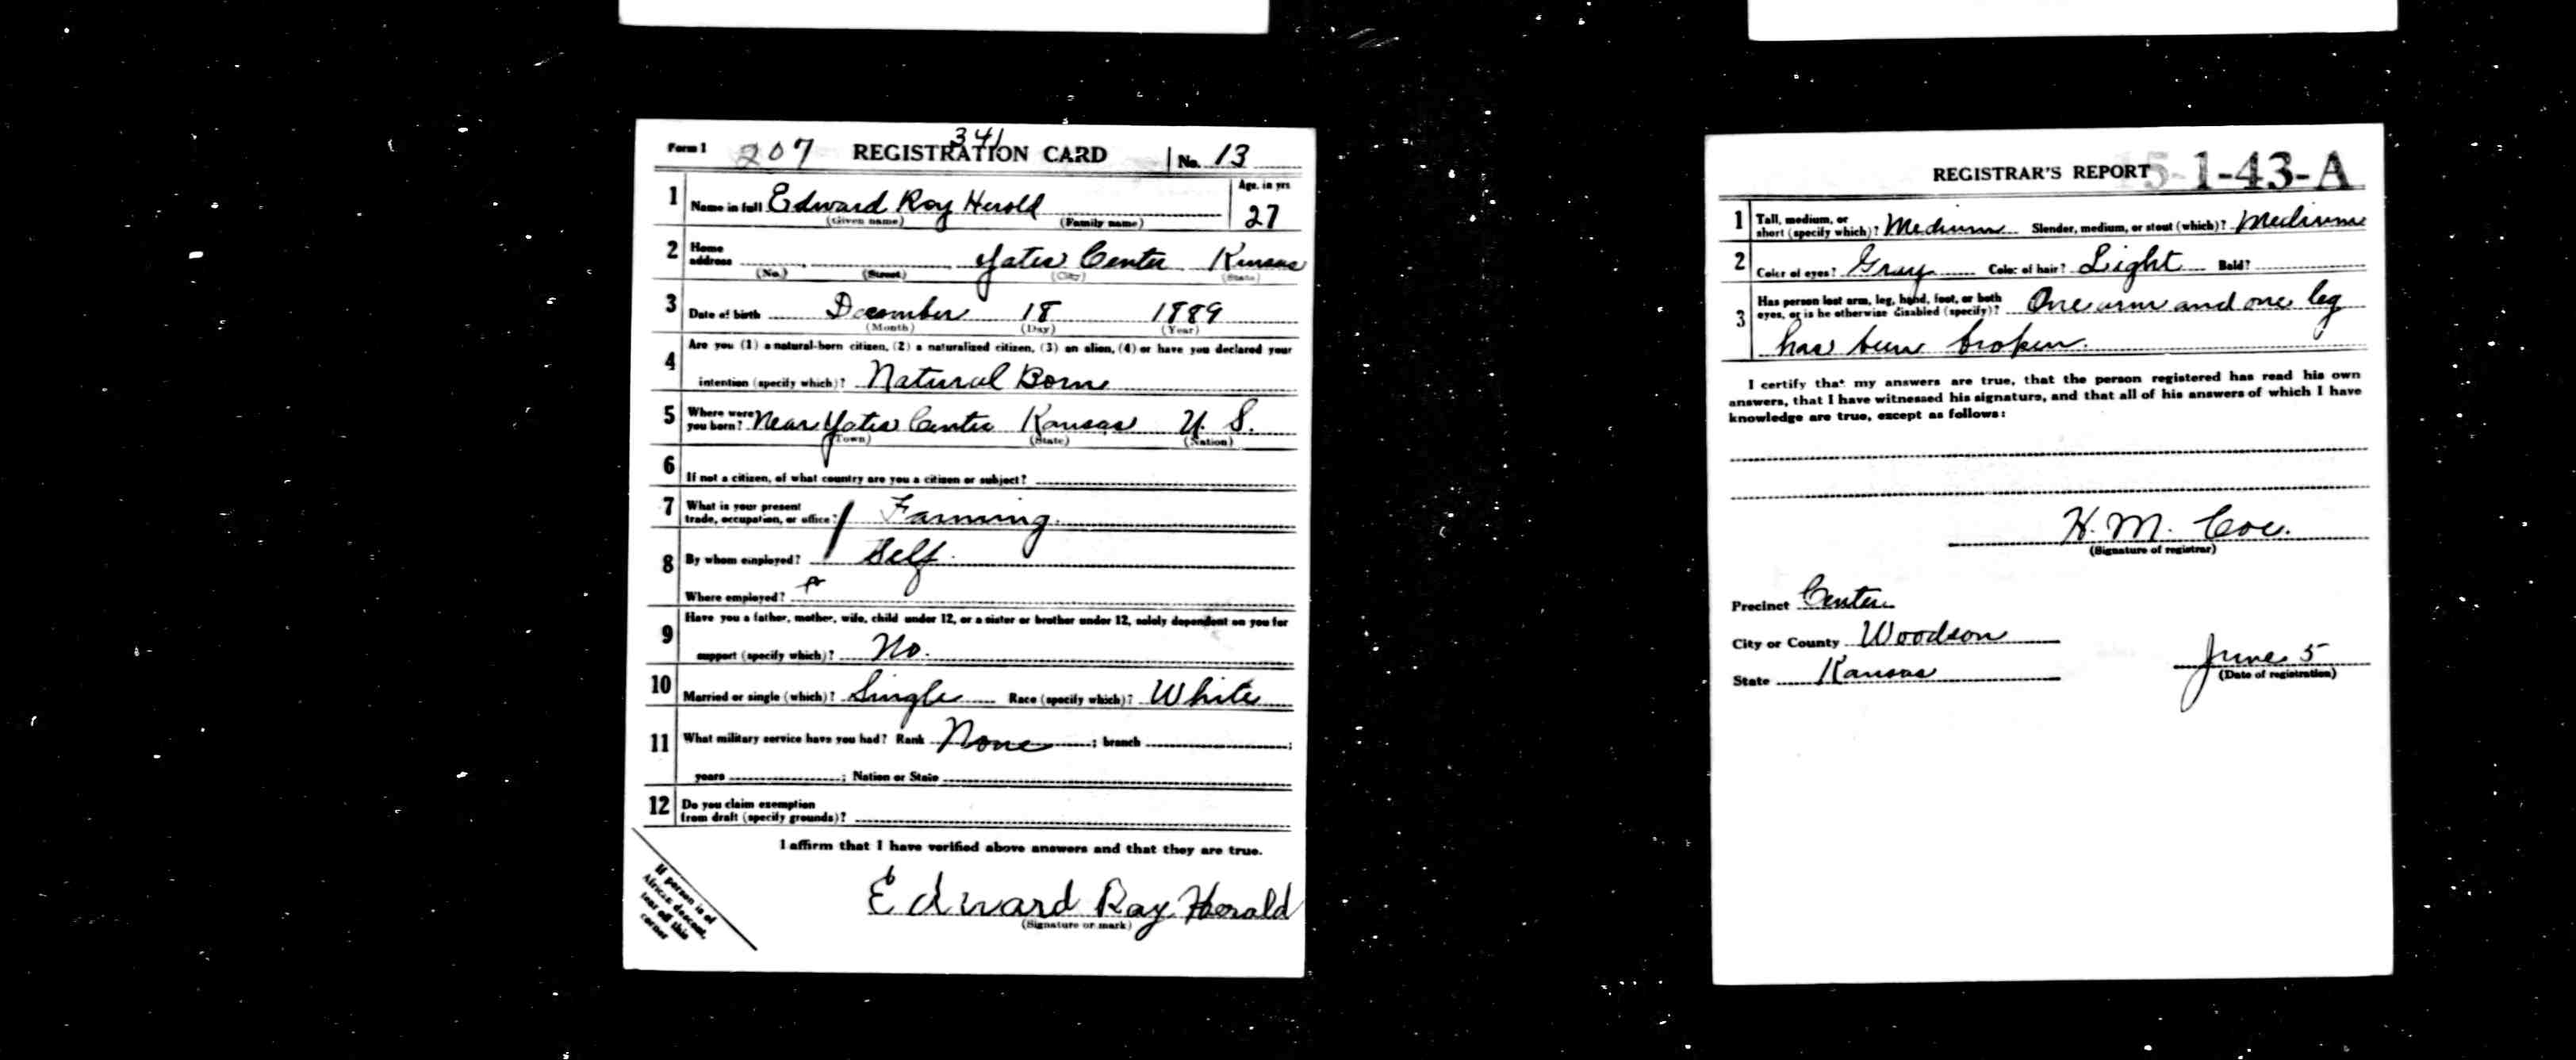 341
Form 1 207 REGISTRATION CARD No. 13
1 Name in full Edward Roy Herold Age, in yrs
(Given name) (Family name) 27
2 Home address Yates Center Kansas
(No.) (Street) (City) (State)
3 Date of birth December 18 1889
(Month) (Day) (Year)
4 Are you (1) a natural-born citizen, (2) a naturalized citizen, (3) an alien, (4) or have you declared your
intention (specify which)? Natural Born
5 Where were you born? Near Yates Center Kansas U. S.
(Town) (State) (Nation)
6 If not a citizen, of what country are you a citizen or subject?
7 What is your present
trade, occupation, or office? Farming
8 By whom employed? Self.
Where employed?
9 Have you a father, mother, wife, child under 12, or a sister or brother under 12, solely dependent on you for
support (specify which)? No.
10 Married or single (which)? Single Race (specify which)? White
11 What military service have you had? Rank None ; branch ;
years ; Nation or State
12 Do you claim exemption
from draft (specify grounds)?
I affirm that I have verified above answers and that they are true.
If person is of
African descent,
tear off this
corner
Edward Ray Herald
(Signature or mark)
REGISTRAR'S REPORT 15-1-43-A
1 Tall, medium, or
short (specify which)? Medium Slender, medium, or stout (which)? Medium
2 Color of eyes? Gray Color of hair? Light Bald?
3 Has person lost arm, leg, hand, foot, or both
eyes, or is he otherwise disabled (specify)? One arm and one leg
has been broken.
I certify that my answers are true, that the person registered has read his own
answers, that I have witnessed his signature, and that all of his answers of which I have
knowledge are true, except as follows:
H. M. Coe.
(Signature of registrar)
Precinct Center
City or County Woodson
State Kansas
June 5
(Date of registration)